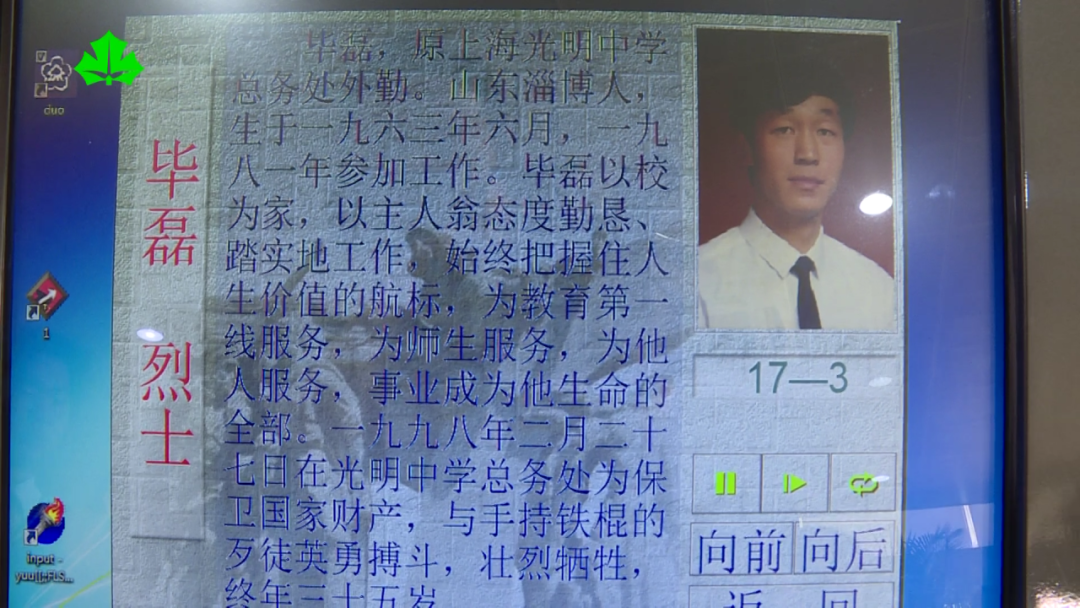 毕磊，原上海光明中学
总务处外勤。山东淄博人，
生于一九六三年六月，一九
八一年参加工作。毕磊以校
为家，以主人翁态度勤恳、
踏实地工作，始终把握住人
生价值的航标，为教育第一
线服务，为师生服务，为他
人服务，事业成为他生命的
全部。一九九八年二月二十
七日在光明中学总务处为保
卫国家财产，与手持铁棍的
歹徒英勇搏斗，壮烈牺牲，
终年三十五岁
毕磊 烈士
17—3
向前 向后
返 回
duo
1
input -